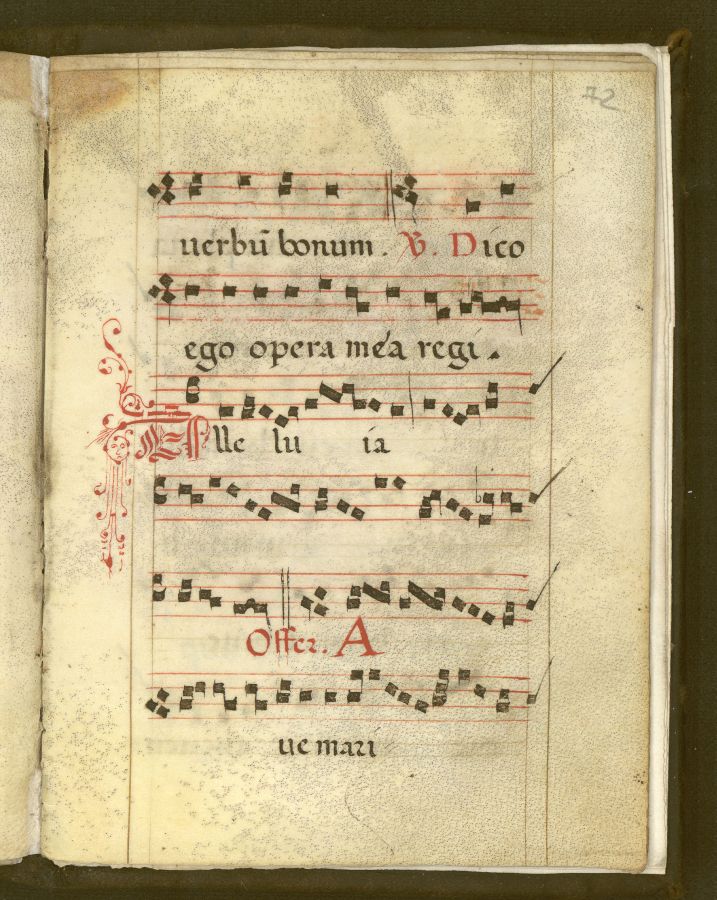 72
uerbū bonum. ℣. Dico
ego opera mea regi.
Alle lu ia
Offer. A
ue mari